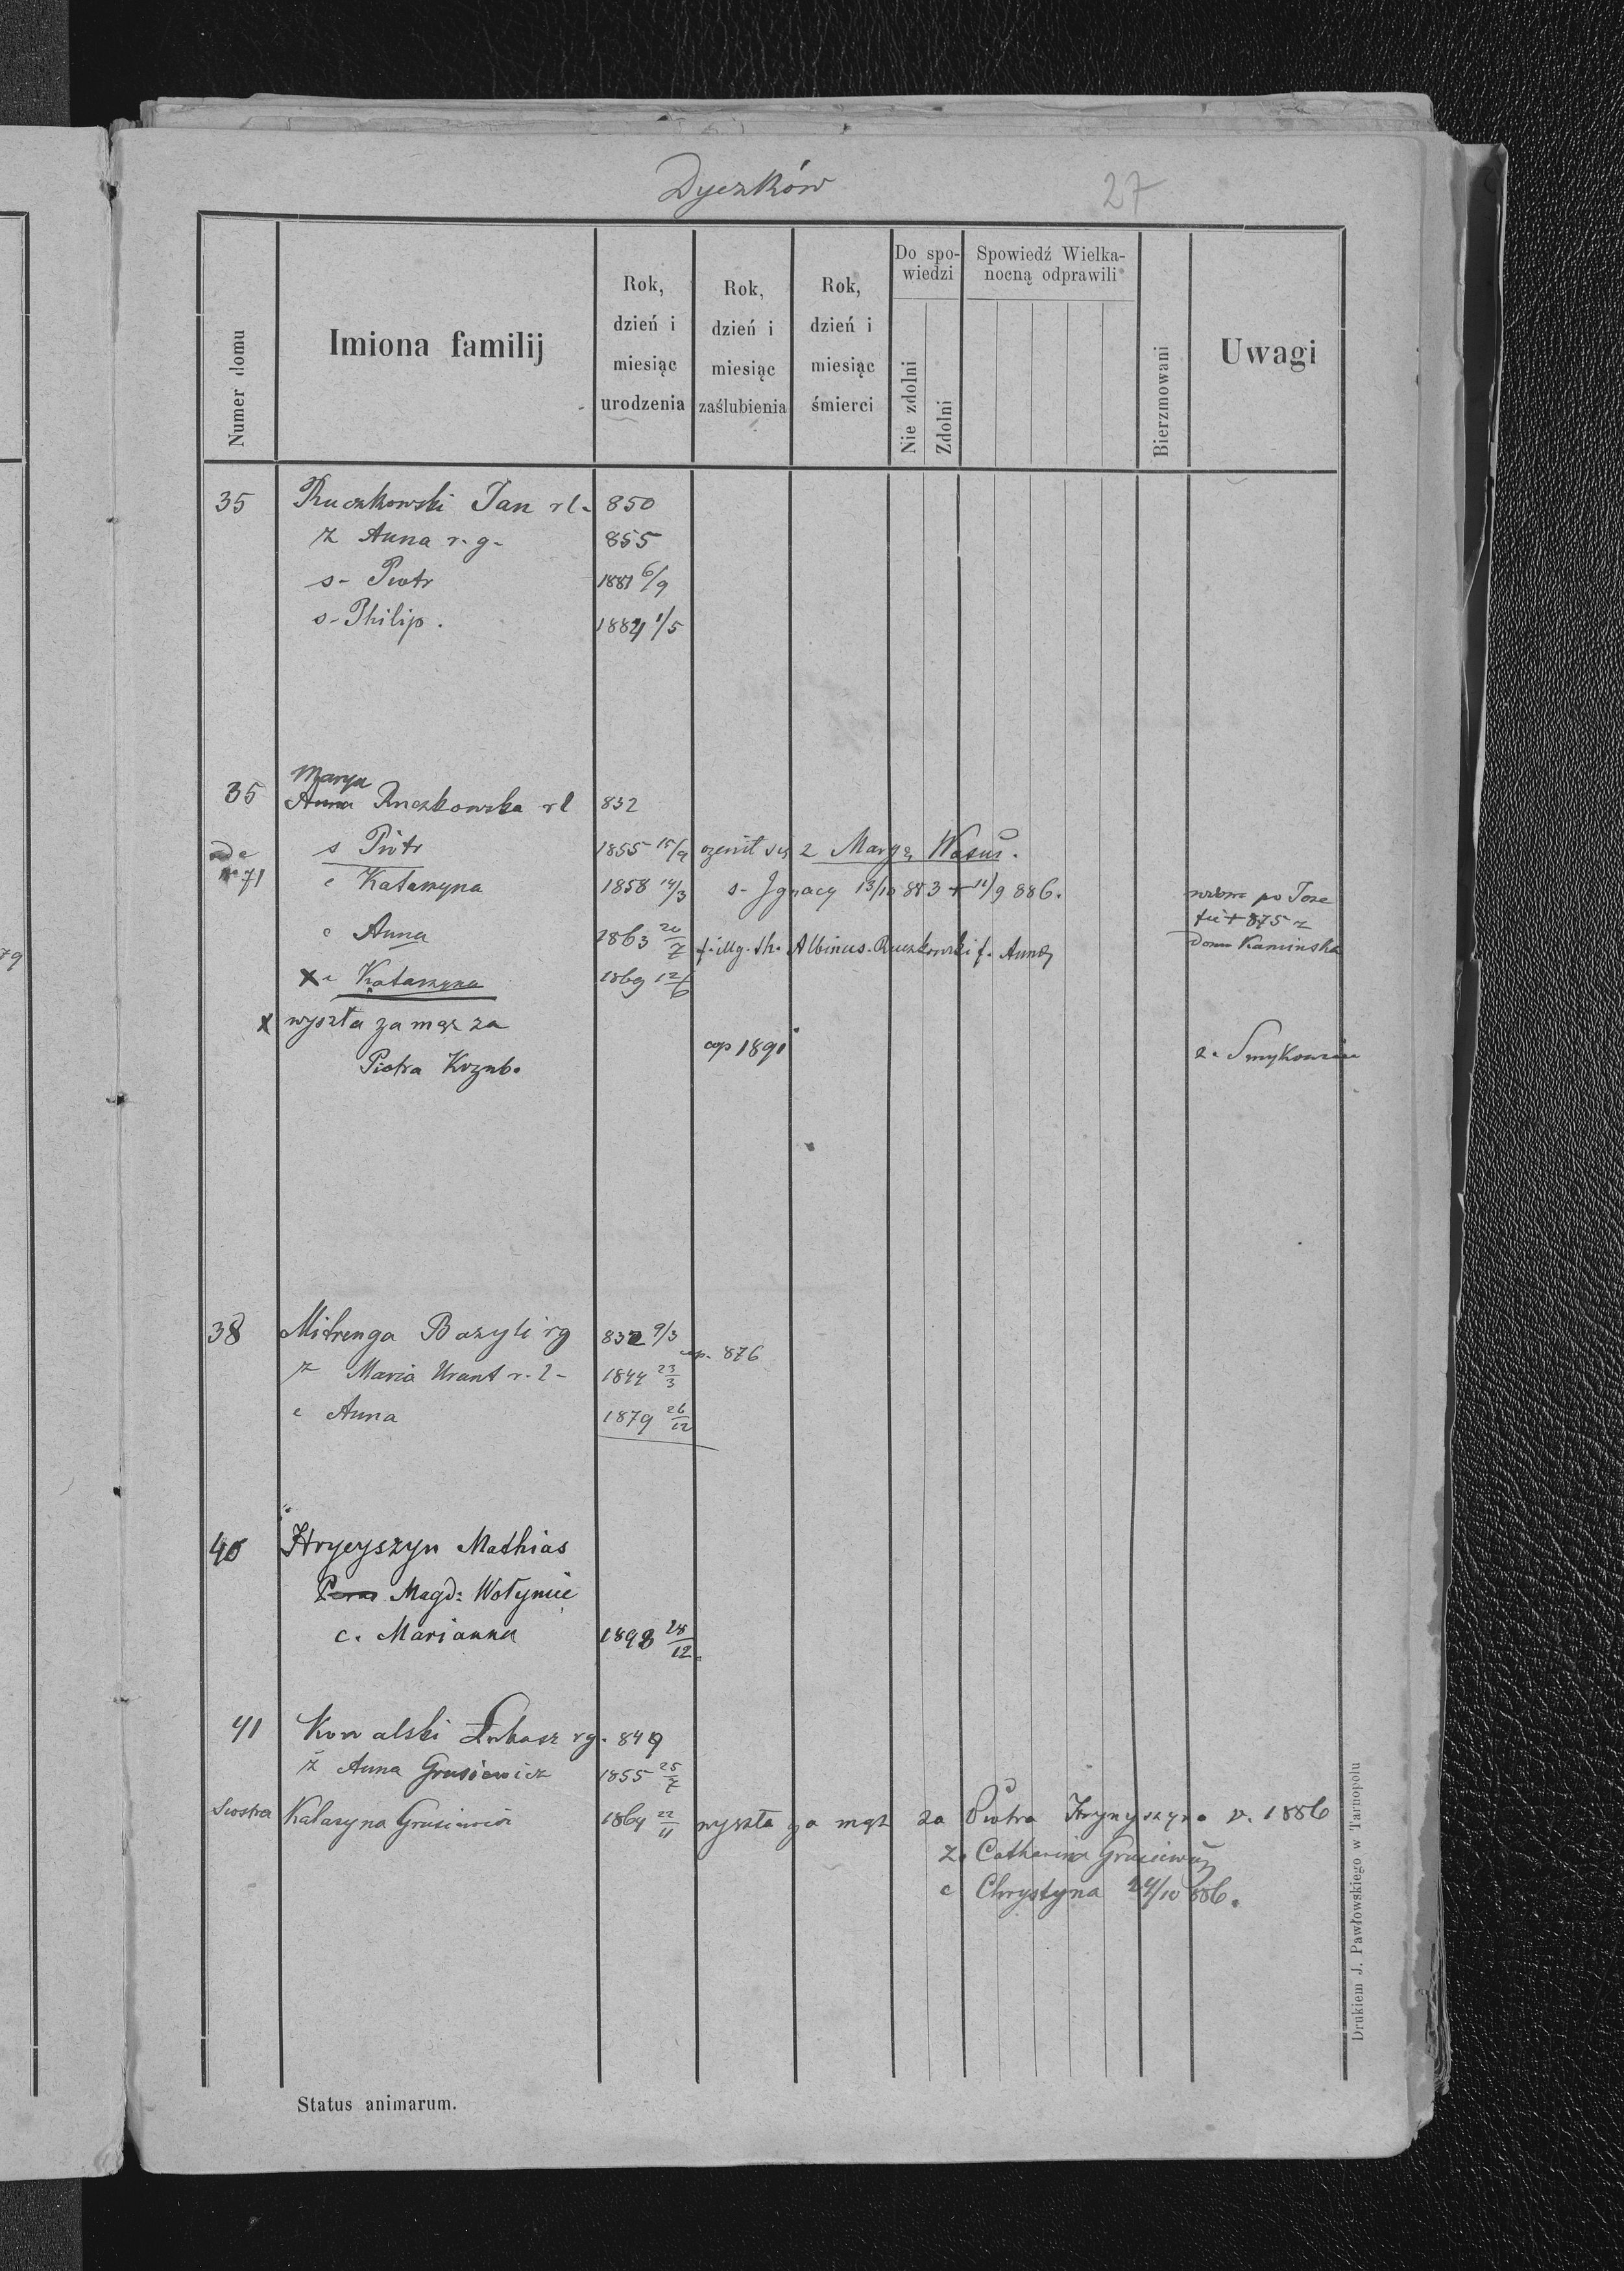 Dyczków
27
Numer domu
Imiona familij
Rok, dzień i miesiąc urodzenia
Rok, dzień i miesiąc zaślubienia
Rok, dzień i miesiąc śmierci
Do spo-
wiedzi
Nie zdolni
Zdolni
Spowiedź Wielka-
nocną odprawili
Bierzmowani
Uwagi
35 Ruczkowski Jan rl. 850
ż Anna r. g. 855
s. Piotr 1881 6/9
s. Philip. 1884 1/5
Marya
35 Anna Ruczkowska rl 832
s Piotr 1855 15/9 ożenił się z Maryą Wasuś.
71 c Katarzyna 1858 14/3 s. Ignacy 13/10 883 + 12/9 886.
po Joze
fie + 875 z
c Anna 1863 20/7 f. illg. th. Albinus. Ruczkowski f. Anny
domu Kaminska
X c Katarzyna 1869 12/6
X wyszła za mąż za
cop 1891
Piotra
38 Mitrenga Bazyli rg 832 9/3
cop. 876
ż Maria Urant r. l. 1844 23/3
c Anna 1879 26/12
40 Hrycyszyn Mathias
Magd: Wołyniie
c. Marianna 1898 28/12
41 Kowalski Łukasz rg. 849
ż Anna Grusiewicz 1855 25/7
Siostra Katarzyna Grusiewicz 1864 22/11 wyszła za mąż za Piotra Hrynyszyn r. 1886
ż. Catharina Grusiewicz
c Chrystyna 24/10 886.
Status animarum.
Drukiem J. Pawłowskiego w Tarnopolu